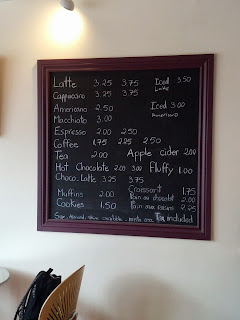 Latte 3.25 3.75 Iced Latte 3.50
Cappuccino 3.25 3.75
Americano 2.50 Iced Americano 3.00
Macchiato 3.00
Espresso 2.00 2.50
Coffee 1.75 2.25 2.50
Tea 2.00 Apple cider 2.00
Hot Chocolate 2.00 3.00 Fluffy 1.00
Choco. Latte 3.25 3.75
Croissant 1.75
Muffins 2.00 Pain au chocolat 2.00
Cookies 1.50 Pain aux raisins 2.25
Soy, Almond, available extra Tax included